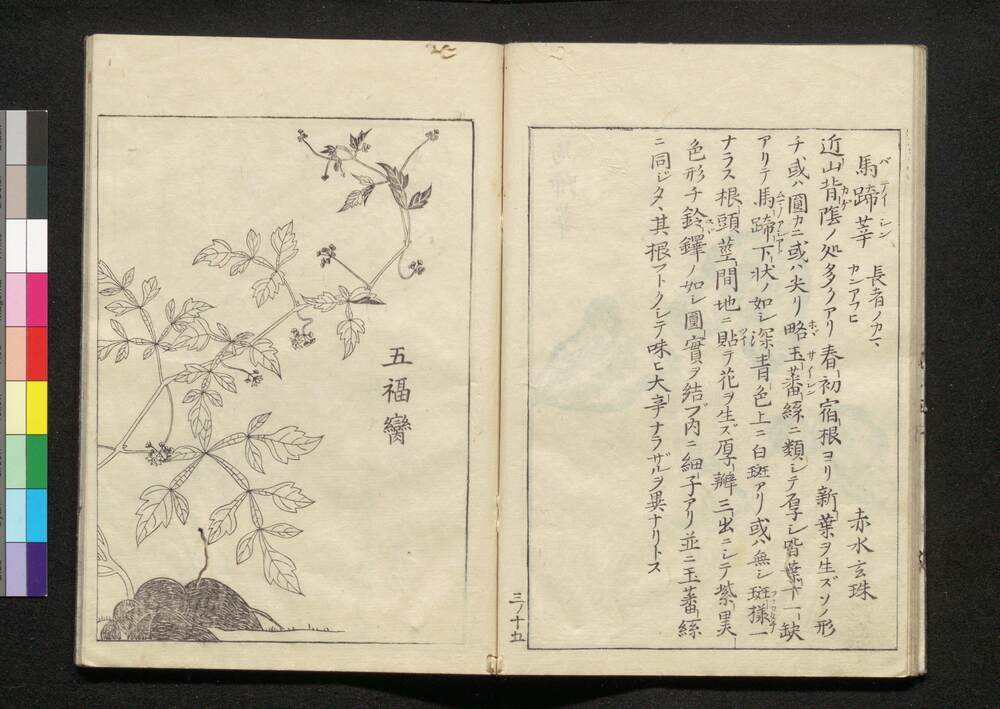 馬蹄莘 長者ノカマ
バテイシン カンアフヒ
赤水玄珠
近山背陰ノ処多クアリ春初宿根ヨリ新葉ヲ生ズソノ形
チ或ハ圓カニ或ハ尖リ略玉蕃絲ニ類シテ厚シ皆葉下一缺
アリテ馬蹄下状ノ如シ深青色上ニ白斑アリ或ハ無シ斑様一
ナラス根頭莖間地ニ貼テ花ヲ生ズ厚瓣三出ニシテ紫黒
色形チ鈴鐸ノ如シ圓實ヲ結ブ内ニ細子アリ並ニ玉蕃絲
ニ同ジタヽ其根フトクシテ味ヒ大辛ナラザルヲ異ナリトス
三ノ十五
五福